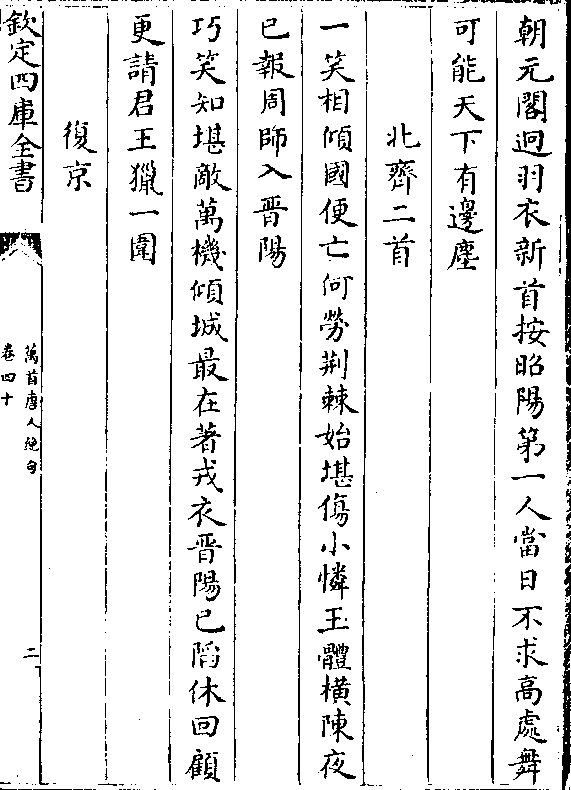 朝元閣迥羽衣新首按昭陽第一人當日不求高處舞
可能天下有邊塵
北齊二首
一笑相傾國便亡何勞荆棘始堪傷小憐玉體橫陳夜
已報周師入晋陽
巧笑知堪敵萬機傾城最在著戎衣晋陽已陷休回顧
更請君王獵一圍
復京
欽定四庫全書
萬首唐人絶句
卷四十
二